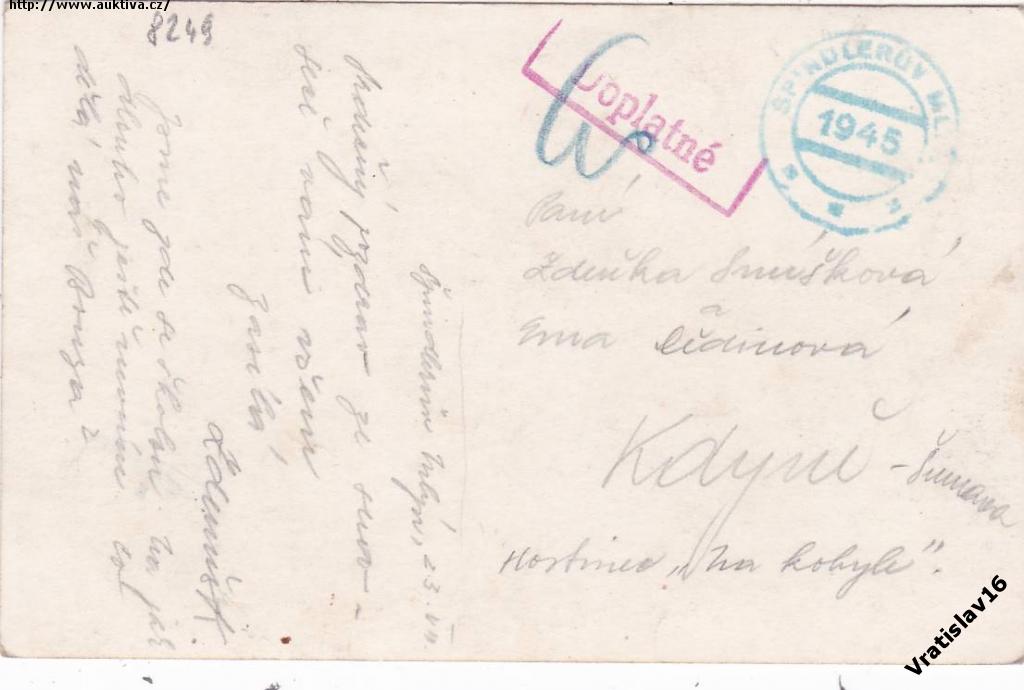 http://www.auktiva.cz/
8249
Doplatné
ŠPINDLERŮV ML.
1945
Paní
Zdeňka Smíšková
a
Ema Cídinová
Kdyně - Šumava
Hostinec „Na kobyle".
Špindlerův Mlýn, 23. VII.
Srdečný pozdrav ze
Vám všem
zasílá
Zdeněk
Jsme zde se školou na
dlouho ještě nevím co
dělá náš
Vratislav16